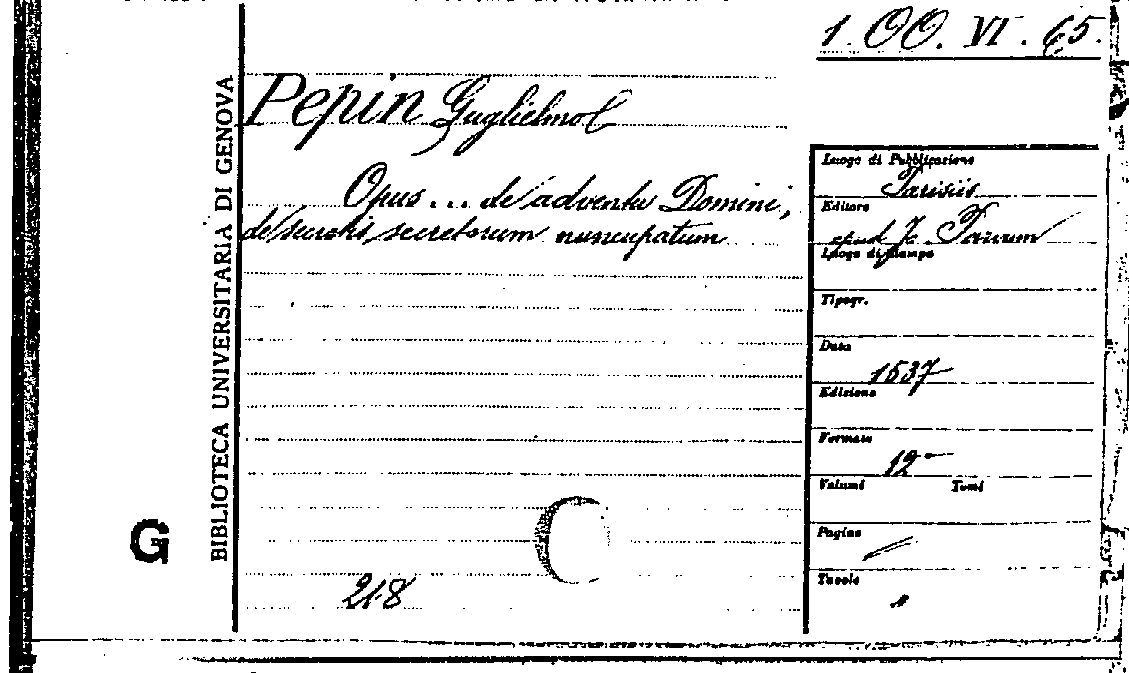 1. OO. VI. 65.
BIBLIOTECA UNIVERSITARIA DI GENOVA
Pepin Guglielmo
Opus ... de adventu Domini,
de secretis secretorum nuncupatum
Luogo di Pubblicazione
Parisiis
Editore
apud J. Parvum
Luogo di stampa
Tipogr.
Data
1537
Edizione
Formato
12°
Volumi Tomi
Pagine
Tavole
G
218